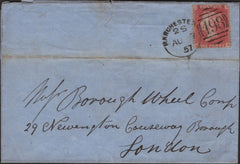 MANCHESTER
AU
57
499
Messrs Borough Wheel Comp
29 Newington Causeway Borough
London